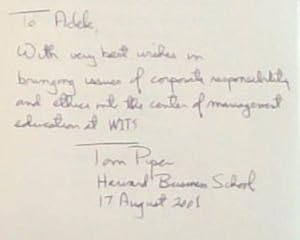 To Adele,
With very best wishes in
bringing issues of corporate responsibility
and ethics into the center of management
education at WITS
Tom Piper
Harvard Business School
17 August 2001